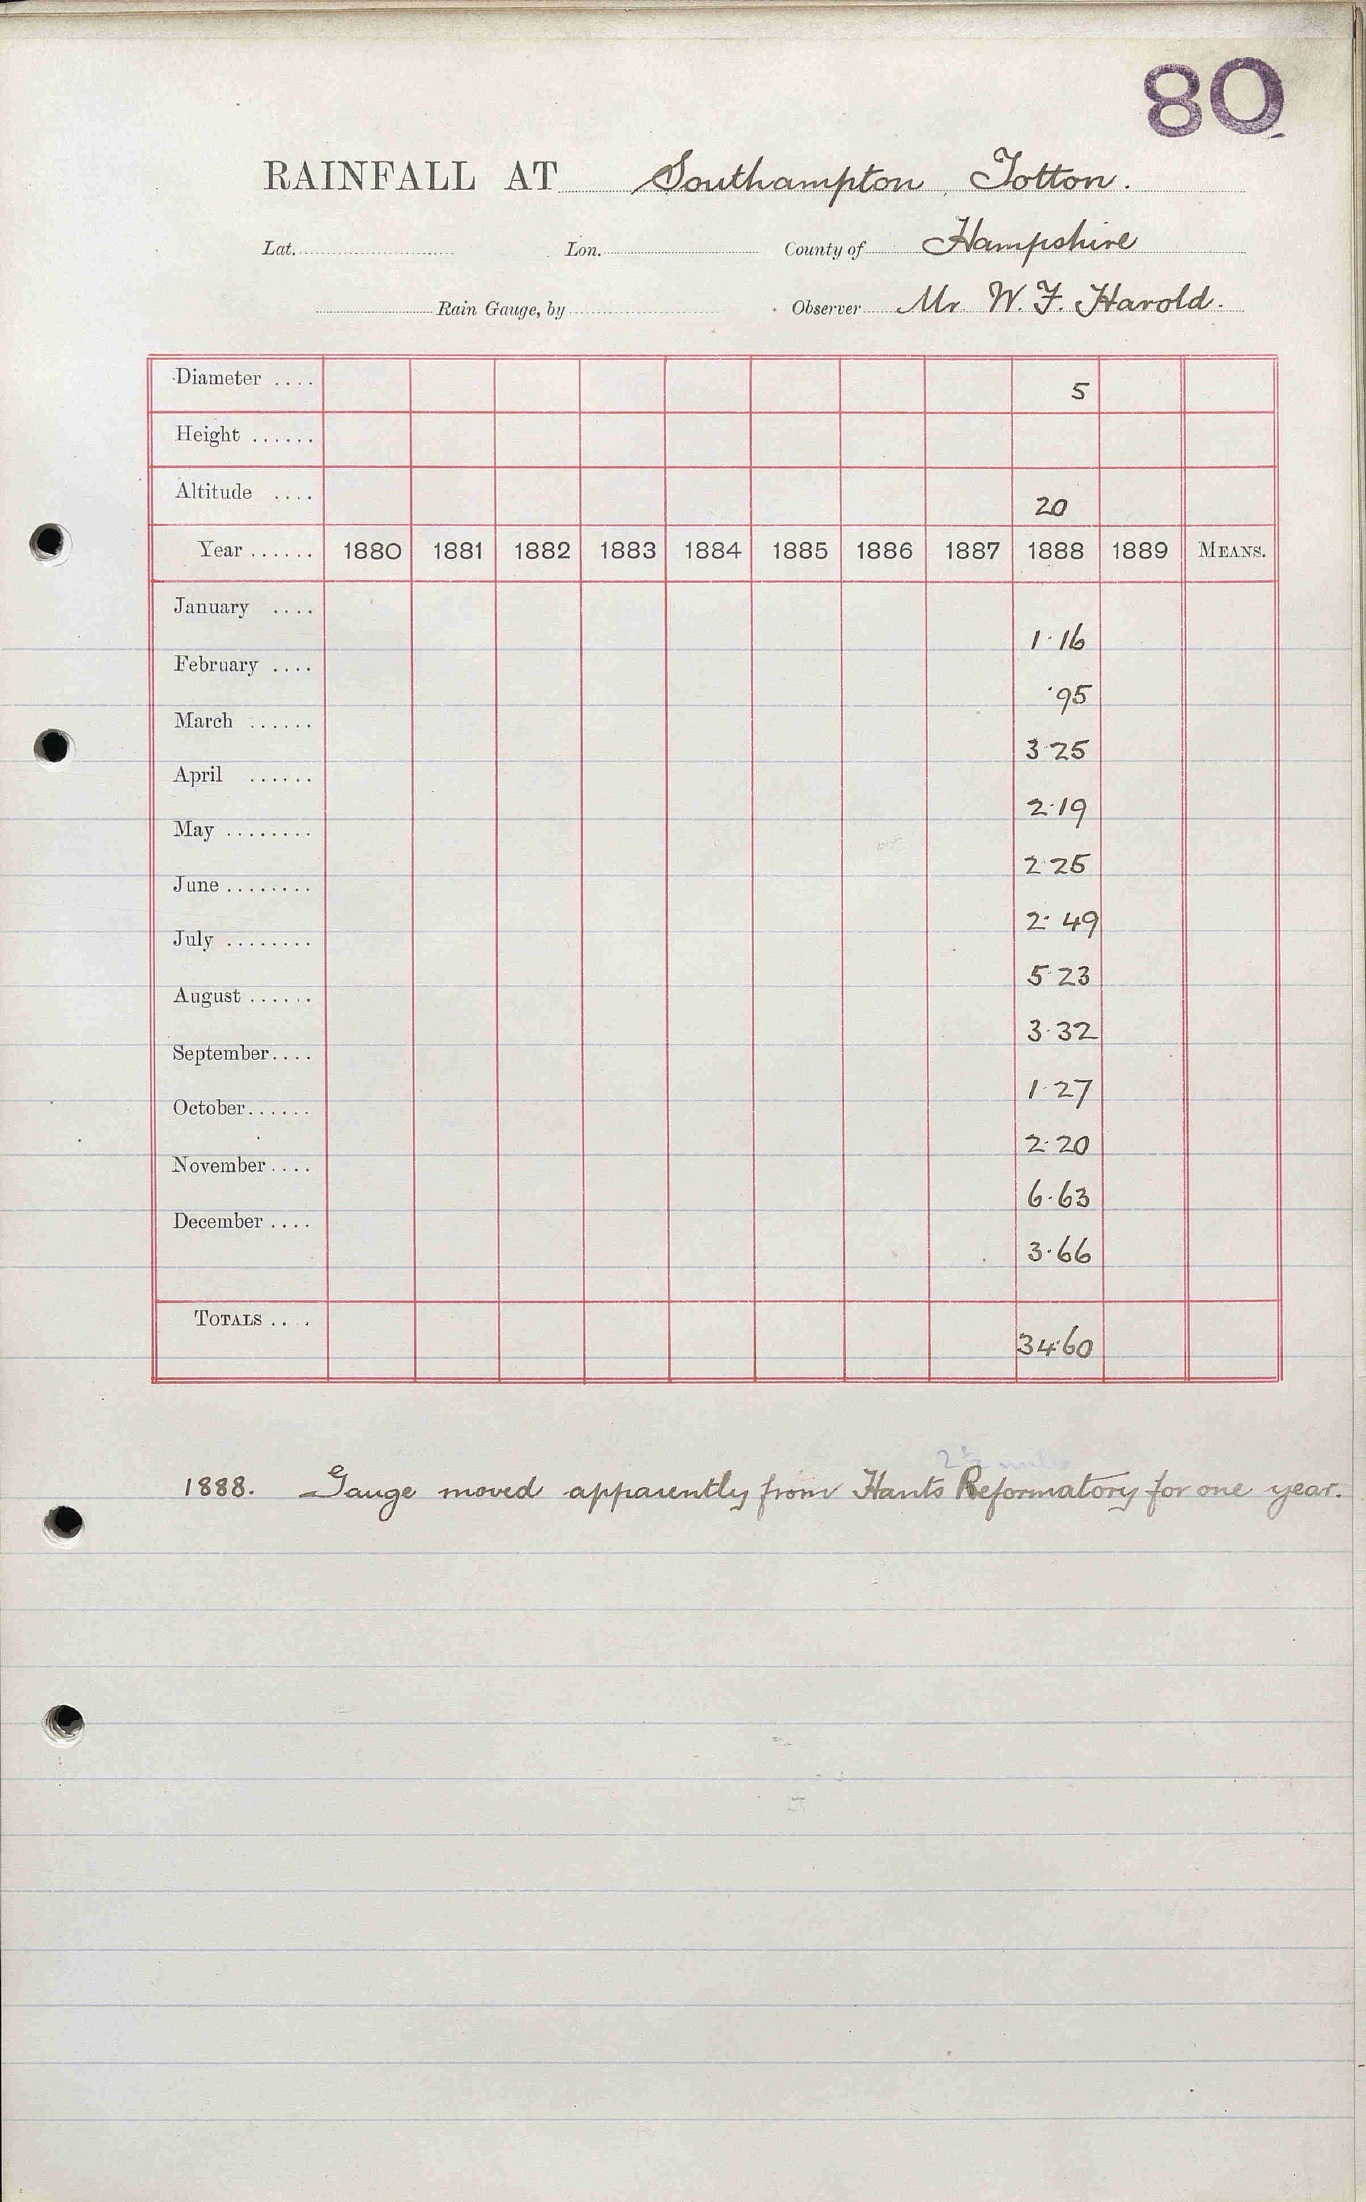 80
RAINFALL AT Southampton, Totton.
Lat. Lon. County of Hampshire
Rain Gauge, by Observer Mr. W. F. Harold.
Diameter .... 5
Height ......
Altitude .... 20
Year ...... 1880 1881 1882 1883 1884 1885 1886 1887 1888 1889 MEANS.
January .... 1.16
February .... .95
March ...... 3.25
April ...... 2.19
May ........ 2.25
June ........ 2.49
July ........ 5.23
August ...... 3.32
September.... 1.27
October...... 2.20
November .... 6.63
December .... 3.66
TOTALS .... 34.60
2½ miles
1888. Gauge moved apparently from Hants Reformatory for one year.